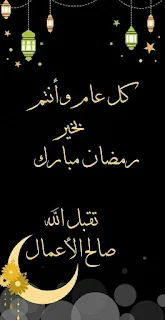 كل عام وأنتم
بخير
رمضان مبارك
تقبل الله
صالح الأعمال